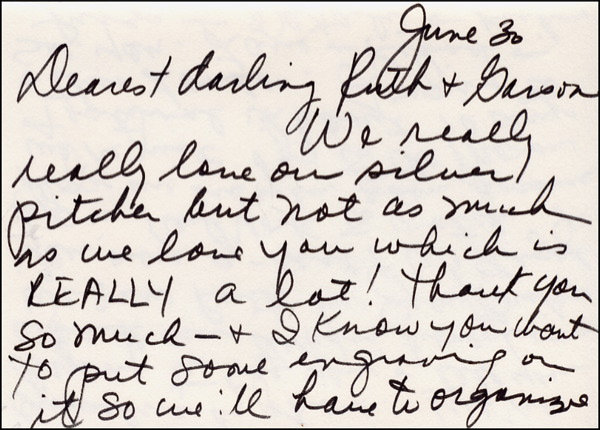 June 30
Dearest darling Ruth + Garson
We really
really love our silver
pitcher but not as much
as we love you which is
REALLY a lot! Thank you
so much — + I know you want
to put some engraving on
it so we'll have to organize